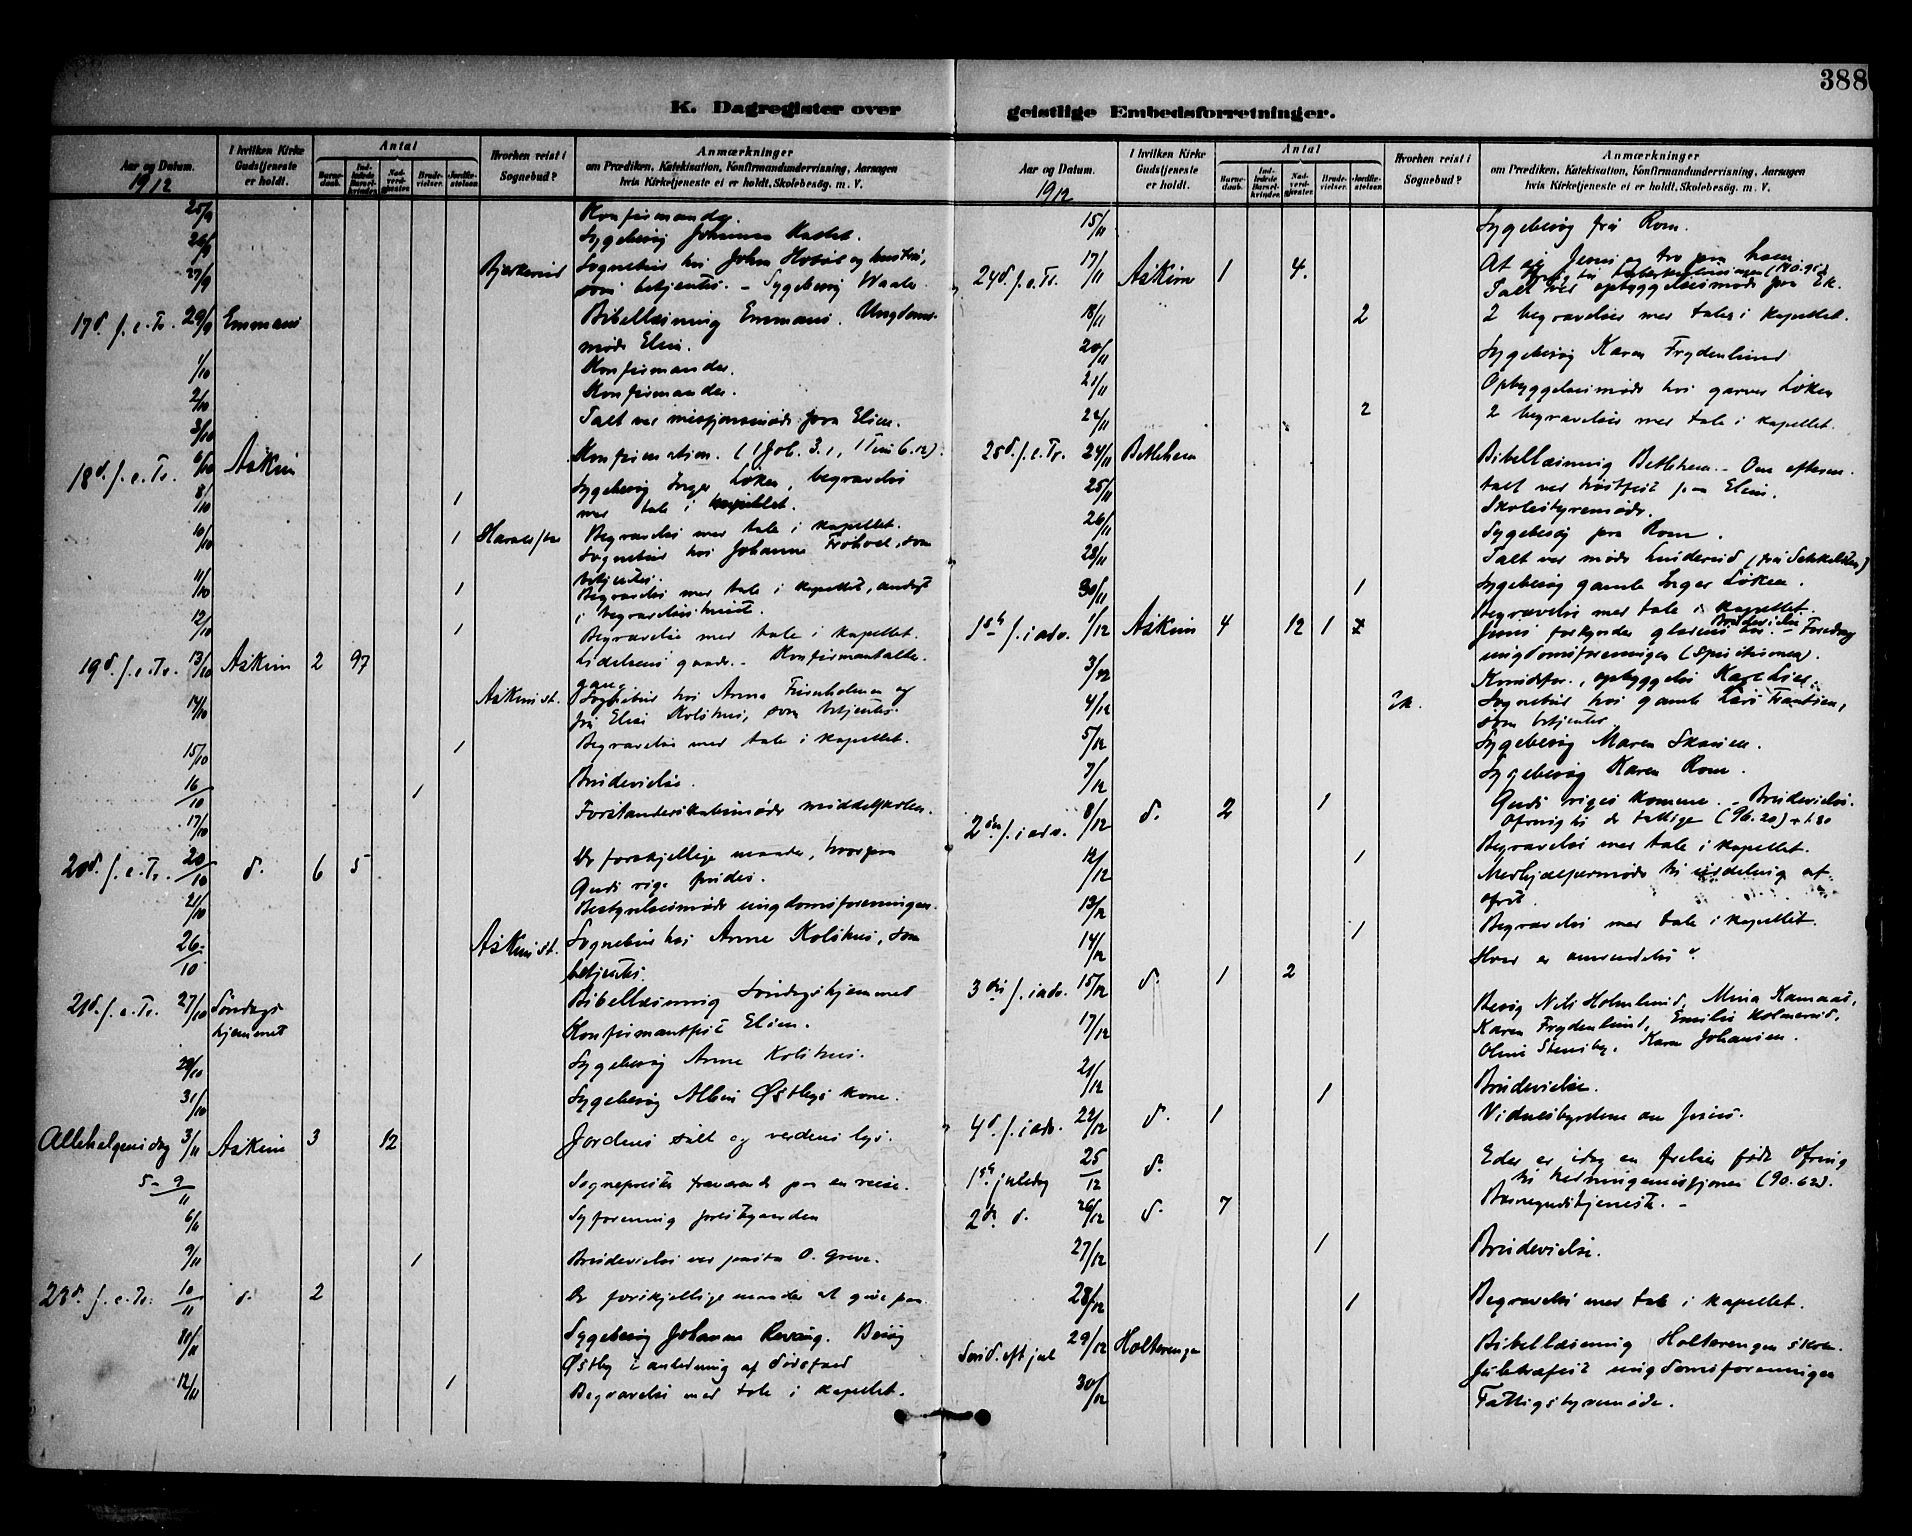 388
K. Dagregister over geistlige Embedsforretninger.
Aar og Datum.
1912
I hvilken Kirke Gudstjeneste er holdt.
Antal
Barnedaab.
Indledede Barselkvinder.
Nadverdgjester.
Brudevielser.
Jordfæstelser.
Hvorhen reist i Sognebud?
Anmærkninger
om Prædiken, Katekisation, Konfirmandundervisning, Aarsagen
hvis Kirketjeneste ei er holdt, Skolebesøg. m. V.
25/9 Konfirmander.
26/9 Sygebesøg Johannes
27/9 Sognebud hos John og hustru,
som betjentes. – Sygebesøg
17 s. f. e. Tr. 29/9 Emmaus Bibellæsning Emmaus. Ungdoms-
møde Elim.
1/10 Konfirmander.
2/10 Konfirmander.
3/10 Talt ved misjonsmøde paa Elim.
18 s. f. e. Tr. 6/10 Askim Konfirmation. (1 Joh. 3.1, 1 Tim 6.12).
8/10 1 Sygebesøg Inger Løken, begravelse
med tale i kapellet.
10/10 1 Begravelse med tale i kapellet.
Sognebud hos Johanne som
betjentes.
11/10 1 Begravelse med tale i kapellet, andagt
i begravelseshuset.
12/10 1 Begravelse med tale i kapellet.
19 s. f. e. Tr. 13/10 Askim 2 97 Lidelsens gaade. – Konfirmantalter-
gang
14/10 Askim st. Sognebud hos Anna og
fru Elise Kolshus, som betjentes.
15/10 1 Begravelse med tale i kapellet.
16/10 1 Brudevielse.
17/10 Forstanderskabsmøde middelskolen.
20 s. f. e. Tr. 20/10 d. 6 5 De forskjellige maader, hvorpaa
Guds rige
21/10 Bestyrelsesmøde ungdomsforeningen.
26/10 Askim st. Sognebud hos Anne Kolshus, som
betjentes.
21 s. f. e. Tr. 27/10 Søndags-
hjemmet Bibellæsning Søndagshjemmet
Konfirmantfest Elim.
29/10 Sygebesøg Anne Kolshus.
31/10 Sygebesøg Albin Østbys kone.
Allehelgensdag 3/11 Askim 3 12 Jordens salt og verdens lys.
5–9/11 Sognepresten fraværende paa en reise.
6/11 Syforening prestegaarden
9/11 1 Brudevielse ved pastor O. Greve.
23 s. f. e. Tr. 10/11 d. 2 De forskjellige maader at give paa.
11/11 Sygebesøg Johanne Revaug. Besøg
Østby i anledning af dødsfald
12/11 1 Begravelse med tale i kapellet.
Aar og Datum.
1912
I hvilken Kirke Gudstjeneste er holdt.
Antal
Barnedaab.
Indledede Barselkvinder.
Nadverdgjester.
Brudevielser.
Jordfæstelser.
Hvorhen reist i Sognebud?
Anmærkninger
om Prædiken, Katekisation, Konfirmandundervisning, Aarsagen
hvis Kirketjeneste ei er holdt, Skolebesøg. m. V.
15/11 Sygebesøg fru Rom.
24 s. f. e. Tr. 17/11 Askim 1 4. At se Jesus og tro paa ham
Talt ved opbyggelsesmøde paa Ek.
18/11 2 2 begravelser med tale i kapellet.
20/11 Sygebesøg Karen Frydenlund
21/11 Opbyggelsesmøde hos garver Løken
22/11 2 2 begravelser med tale i kapellet.
25 s. f. e. Tr. 24/11 Betlehem Bibellæsning Betlehem. – Om efterm.
talt ved høstfest paa Elim.
25/11 Skolestyremøde.
26/11 Sygebesøg paa Rom.
28/11 Talt ved møde
Sygebesøg gamle Inger Løken.
30/11 1 Begravelse med tale i kapellet.
1ste s. i adv. 1/12 Askim 4 12 1 Jesus forkynder glædens bud. Brudevielse – Foredrag
ungdomsforeningen (Spiritismen).
3/12 Kvindefor., opbyggelse Kare Lier.
4/12 Sognebud hos gamle Lars Frantsen,
som betjentes.
5/12 Sygebesøg Maren Skansen.
7/12 Sygebesøg Karen Rom.
2den s. i adv. 8/12 d. 2 1 Guds riges komme. – Brudevielse.
Ofring til de fattige (96.20)
12/12 1 Begravelse med tale i kapellet.
13/12 Medhjælpermøde til uddeling af
ofret.
14/12 1 Begravelse med tale i kapellet.
3die s. i adv. 15/12 d. 1 2 Hvad er omvendelse?
17/12 Besøg Nils Holmlund, Mina Kamaas,
Karen Frydenlund, Emilie Holmerud,
Oline Stensby, Karen Johansen.
21/12 1 Brudevielse.
4 s. i adv. 22/12 d. 1 Vidnesbyrdene om Jesus.
1ste juledag 25/12 d. Eder er idag en frelser født. Ofring
til hedningemissjonen (90.62).
2den d. 26/12 d. 7 Barnegudstjeneste. –
27/12 1 Brudevielse.
28/12 1 Begravelse med tale i kapellet.
Sønd. eft jul 29/12 Holterengen Bibellæsning Holterengen skole.
Juletræfest ungdomsforeningen
30/12 Fattigstyremøde.